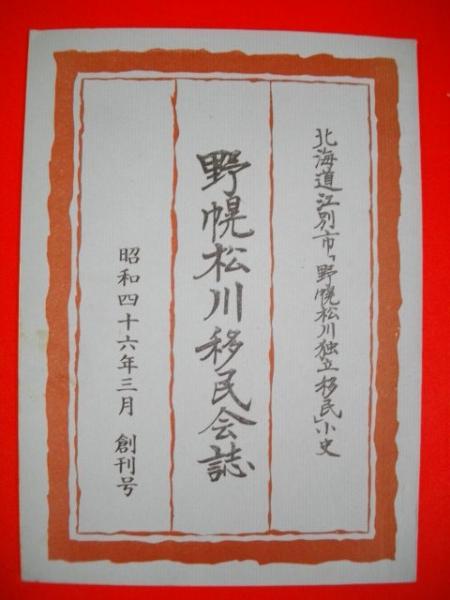 北海道江別市「野幌松川独立移民」小史
野幌松川移民会誌
昭和四十六年三月 創刊号